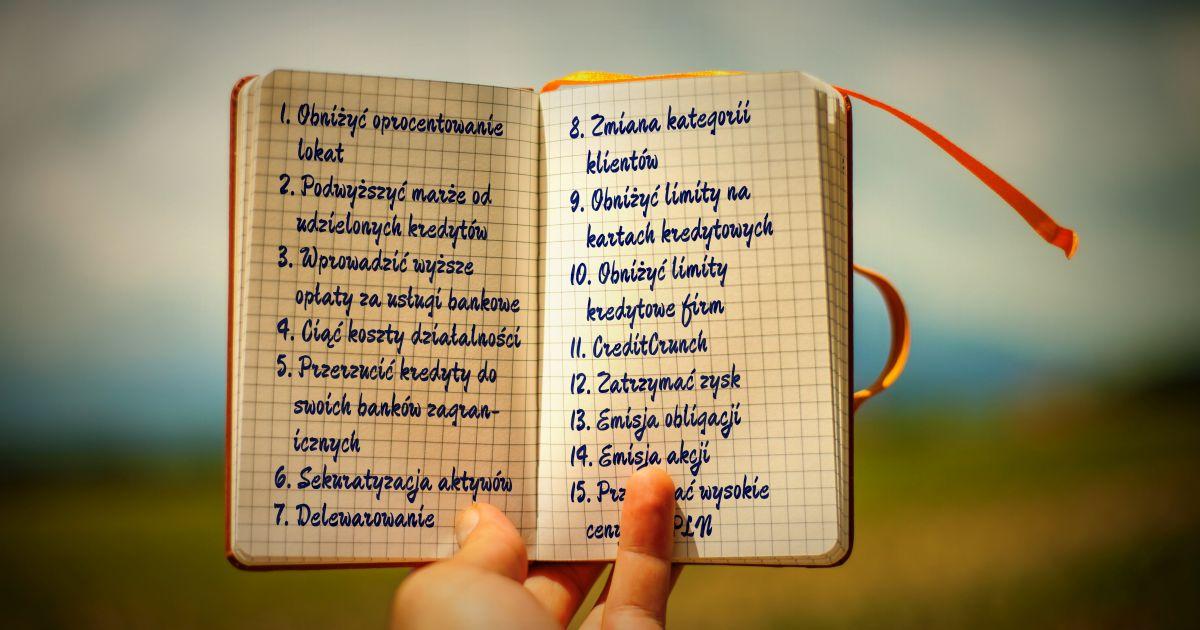 1. Obniżyć oprocentowanie
lokat
2. Podwyższyć marże od
udzielonych kredytów
3. Wprowadzić wyższe
opłaty za usługi bankowe
4. Ciąć koszty działalności
5. Przerzucić kredyty do
swoich banków zagran-
icznych
6. Sekuratyzacja aktywów
7. Delewarowanie
8. Zmiana kategorii
klientów
9. Obniżyć limity na
kartach kredytowych
10. Obniżyć limity
kredytowe firm
11. CreditCrunch
12. Zatrzymać zysk
13. Emisja obligacji
14. Emisja akcji
15. wysokie
PLN